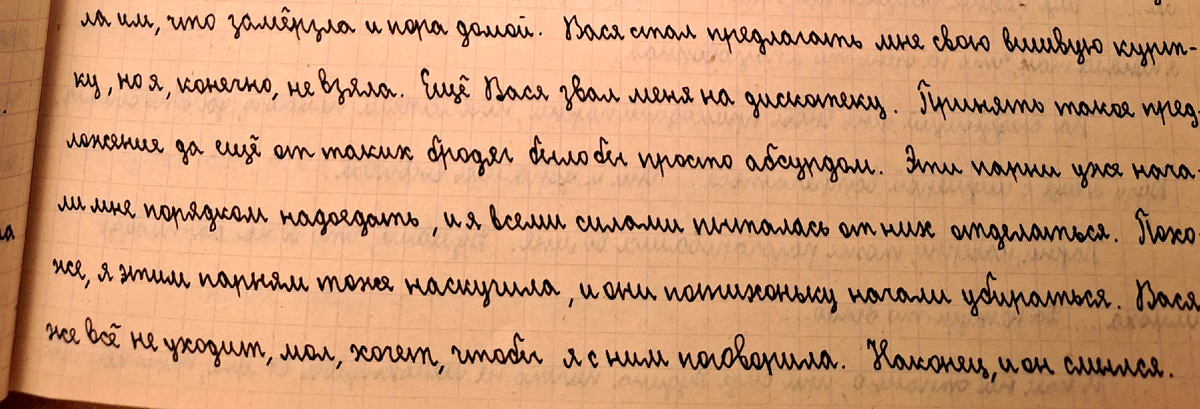 ла им, что замёрзла и пора домой. Вася стал предлагать мне свою вшивую курт-
ку, но я, конечно, не взяла. Ещё Вася звал меня на дискотеку. Принять такое пред-
ложение да ещё от таких бродяг было бы просто абсурдом. Эти парни уже нача-
ли мне порядком надоедать, и я всеми силами пыталась от них отделаться. Похо-
же, я этим парням тоже наскучила, и они потихоньку начали убираться. Вася
же всё не уходит, мол, хочет, чтобы я с ним поговорила. Наконец, и он смылся.